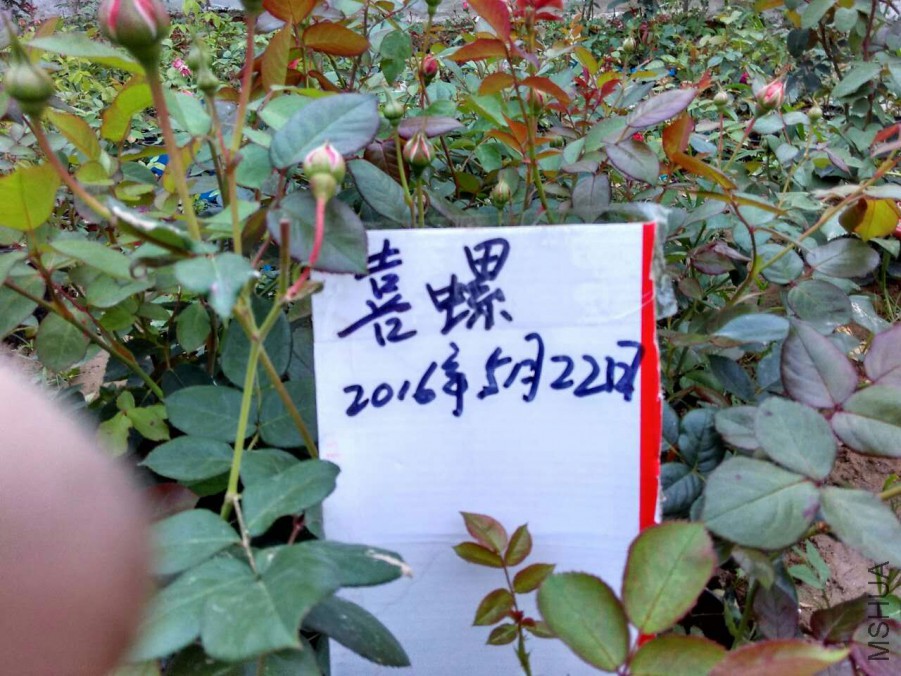 喜螺
2016年5月22日
MSHUA